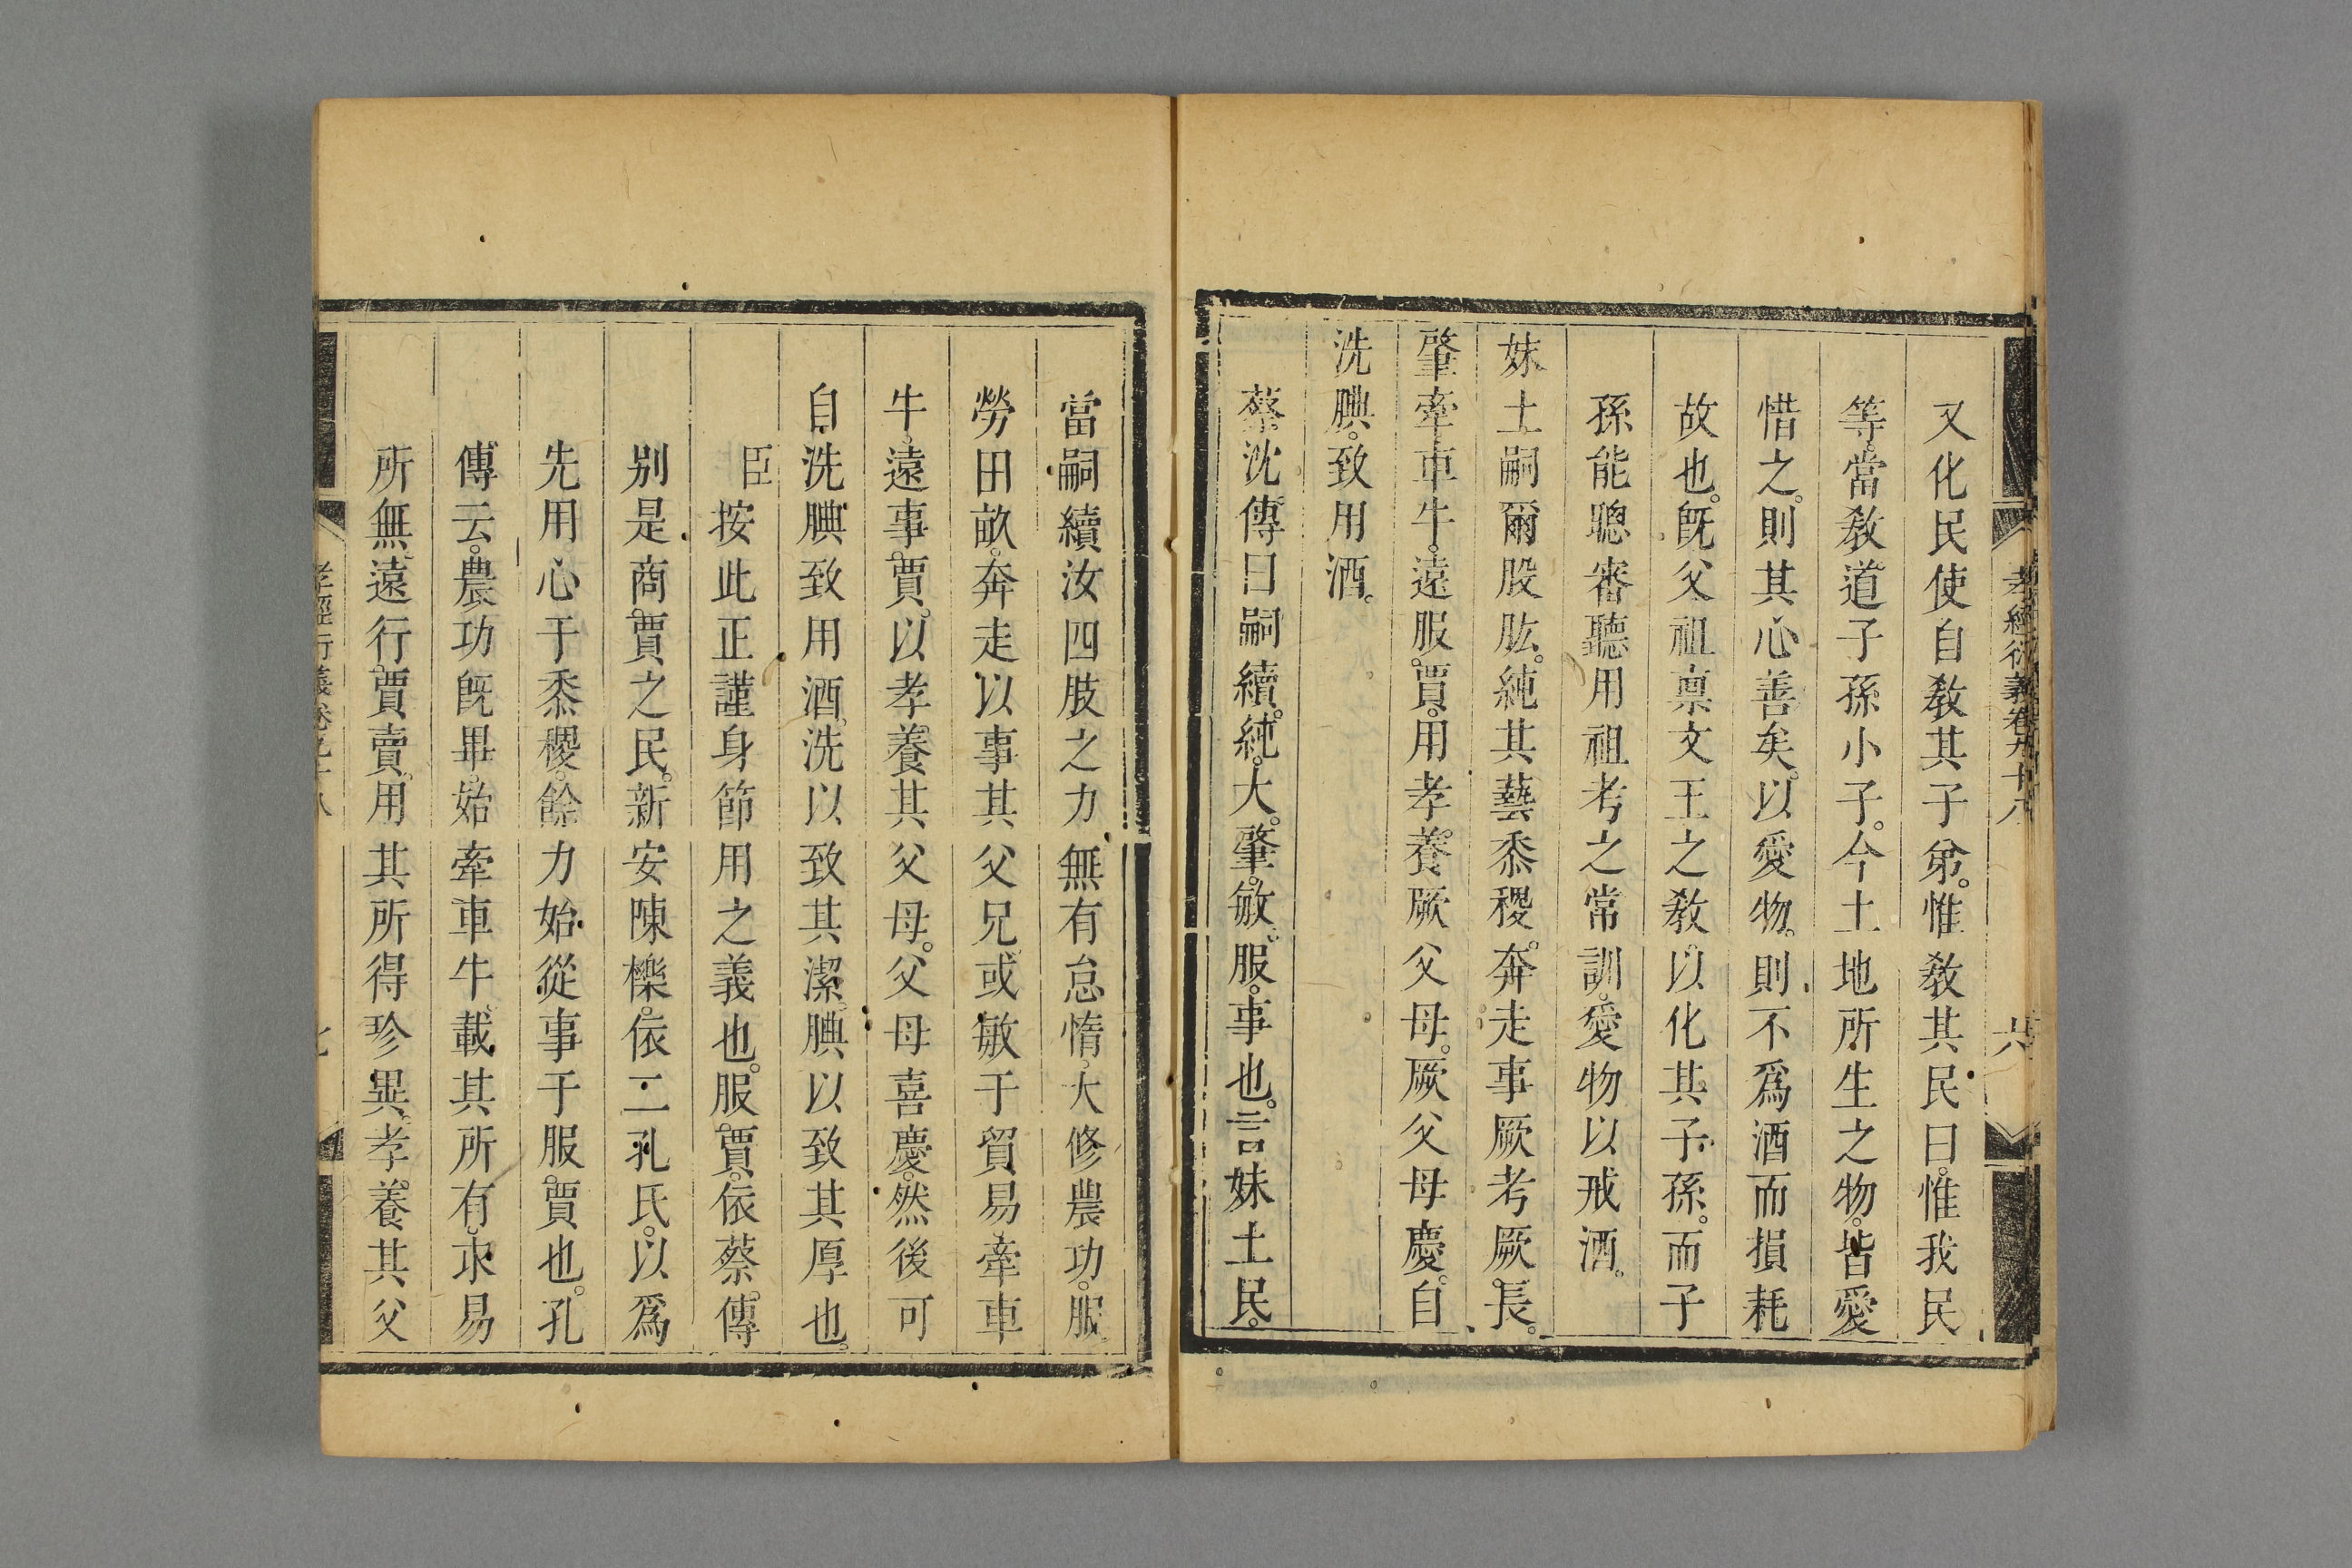 孝經衍義卷九十八 六
又化民使自敎其子弟。惟敎其民曰。惟我民
等。當敎道子孫小子。今土地所生之物。皆愛
惜之。則其心善矣。以愛物。則不爲酒而損耗
故也。旣父祖禀文王之敎。以化其子孫。而子
孫能聰審聽用祖考之常訓。愛物以戒酒。
妹土嗣爾股肱。純其藝黍稷。奔走事厥考厥長。
肇牽車牛。遠服。賈。用孝養。厥父母。厥父母慶。自
洗腆。致用酒。
蔡沈傳曰嗣續。純。大。肇。敏。服。事也。言妹土民。
當嗣續汝四肢之力無有怠惰。大修農功。服
勞田畝。奔走以事其父兄或敏于貿易牽車
牛。遠事。賈。以孝養其父母。父母喜慶。然後可
自洗腆致用酒。洗以致其潔。腆以致其厚也。
臣按此正謹身節用之義也。服。賈。依蔡傳
别是商賈之民。新安陳櫟。依二孔氏。以爲
先用心于黍稷。餘力始從事于服賈也。孔
傳云。農功旣畢。始牽車牛。載其所有。求易
所無。遠行賈賣。用其所得珍異。孝養其父
孝經衍義卷九十八 七